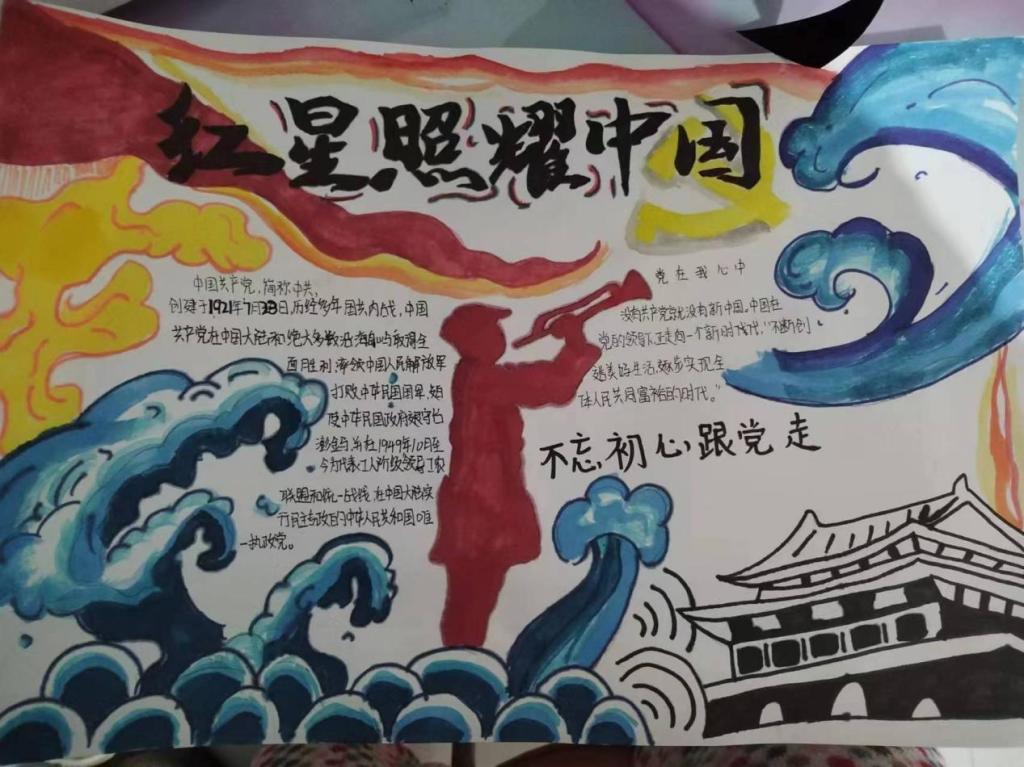 红星照耀中国
中国共产党,简称中共,
创建于1921年7月23日,历经多年国共内战,中国
共产党在中国大陆和绝大多数沿海岛屿取得全
面胜利,率领中国人民解放军
打败中华民国国军,迫
使中华民国政府
在1949年10月至
今为代表工人阶级领导工农
联盟和统一战线,在中国大陆实
行民主专政的中华人民共和国唯
一执政党。
党在我心中
没有共产党就没有新中国,中国在
党的领导下正走向一个新时代,“不断创
造美好生活,逐步实现全
体人民共同富裕的时代。”
不忘初心跟党走